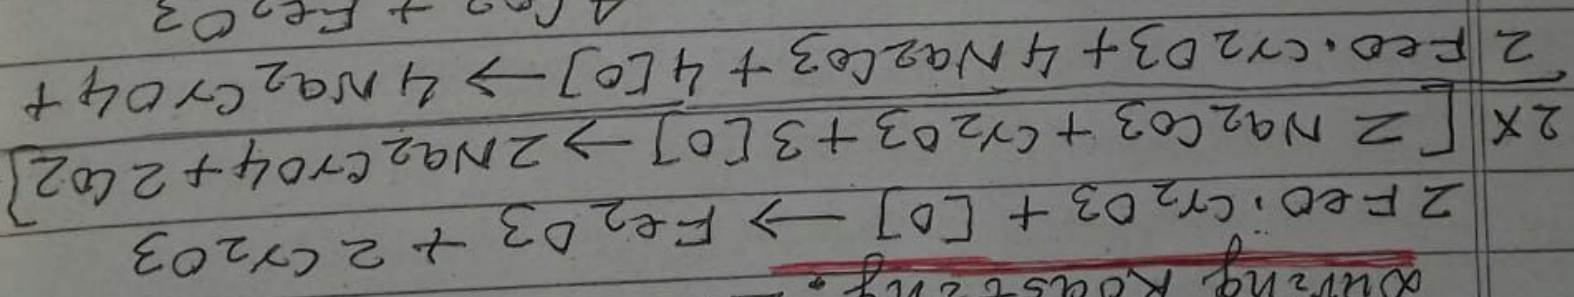 During Roasting :-
2 FeO·Cr2O3 + [O] → Fe2O3 + 2 Cr2O3
2x [2 Na2CO3 + Cr2O3 + 3[O] → 2Na2CrO4 + 2CO2]
2 FeO·Cr2O3 + 4 Na2CO3 + 4[O] → 4 Na2CrO4 +
4 CO2 + Fe2O3